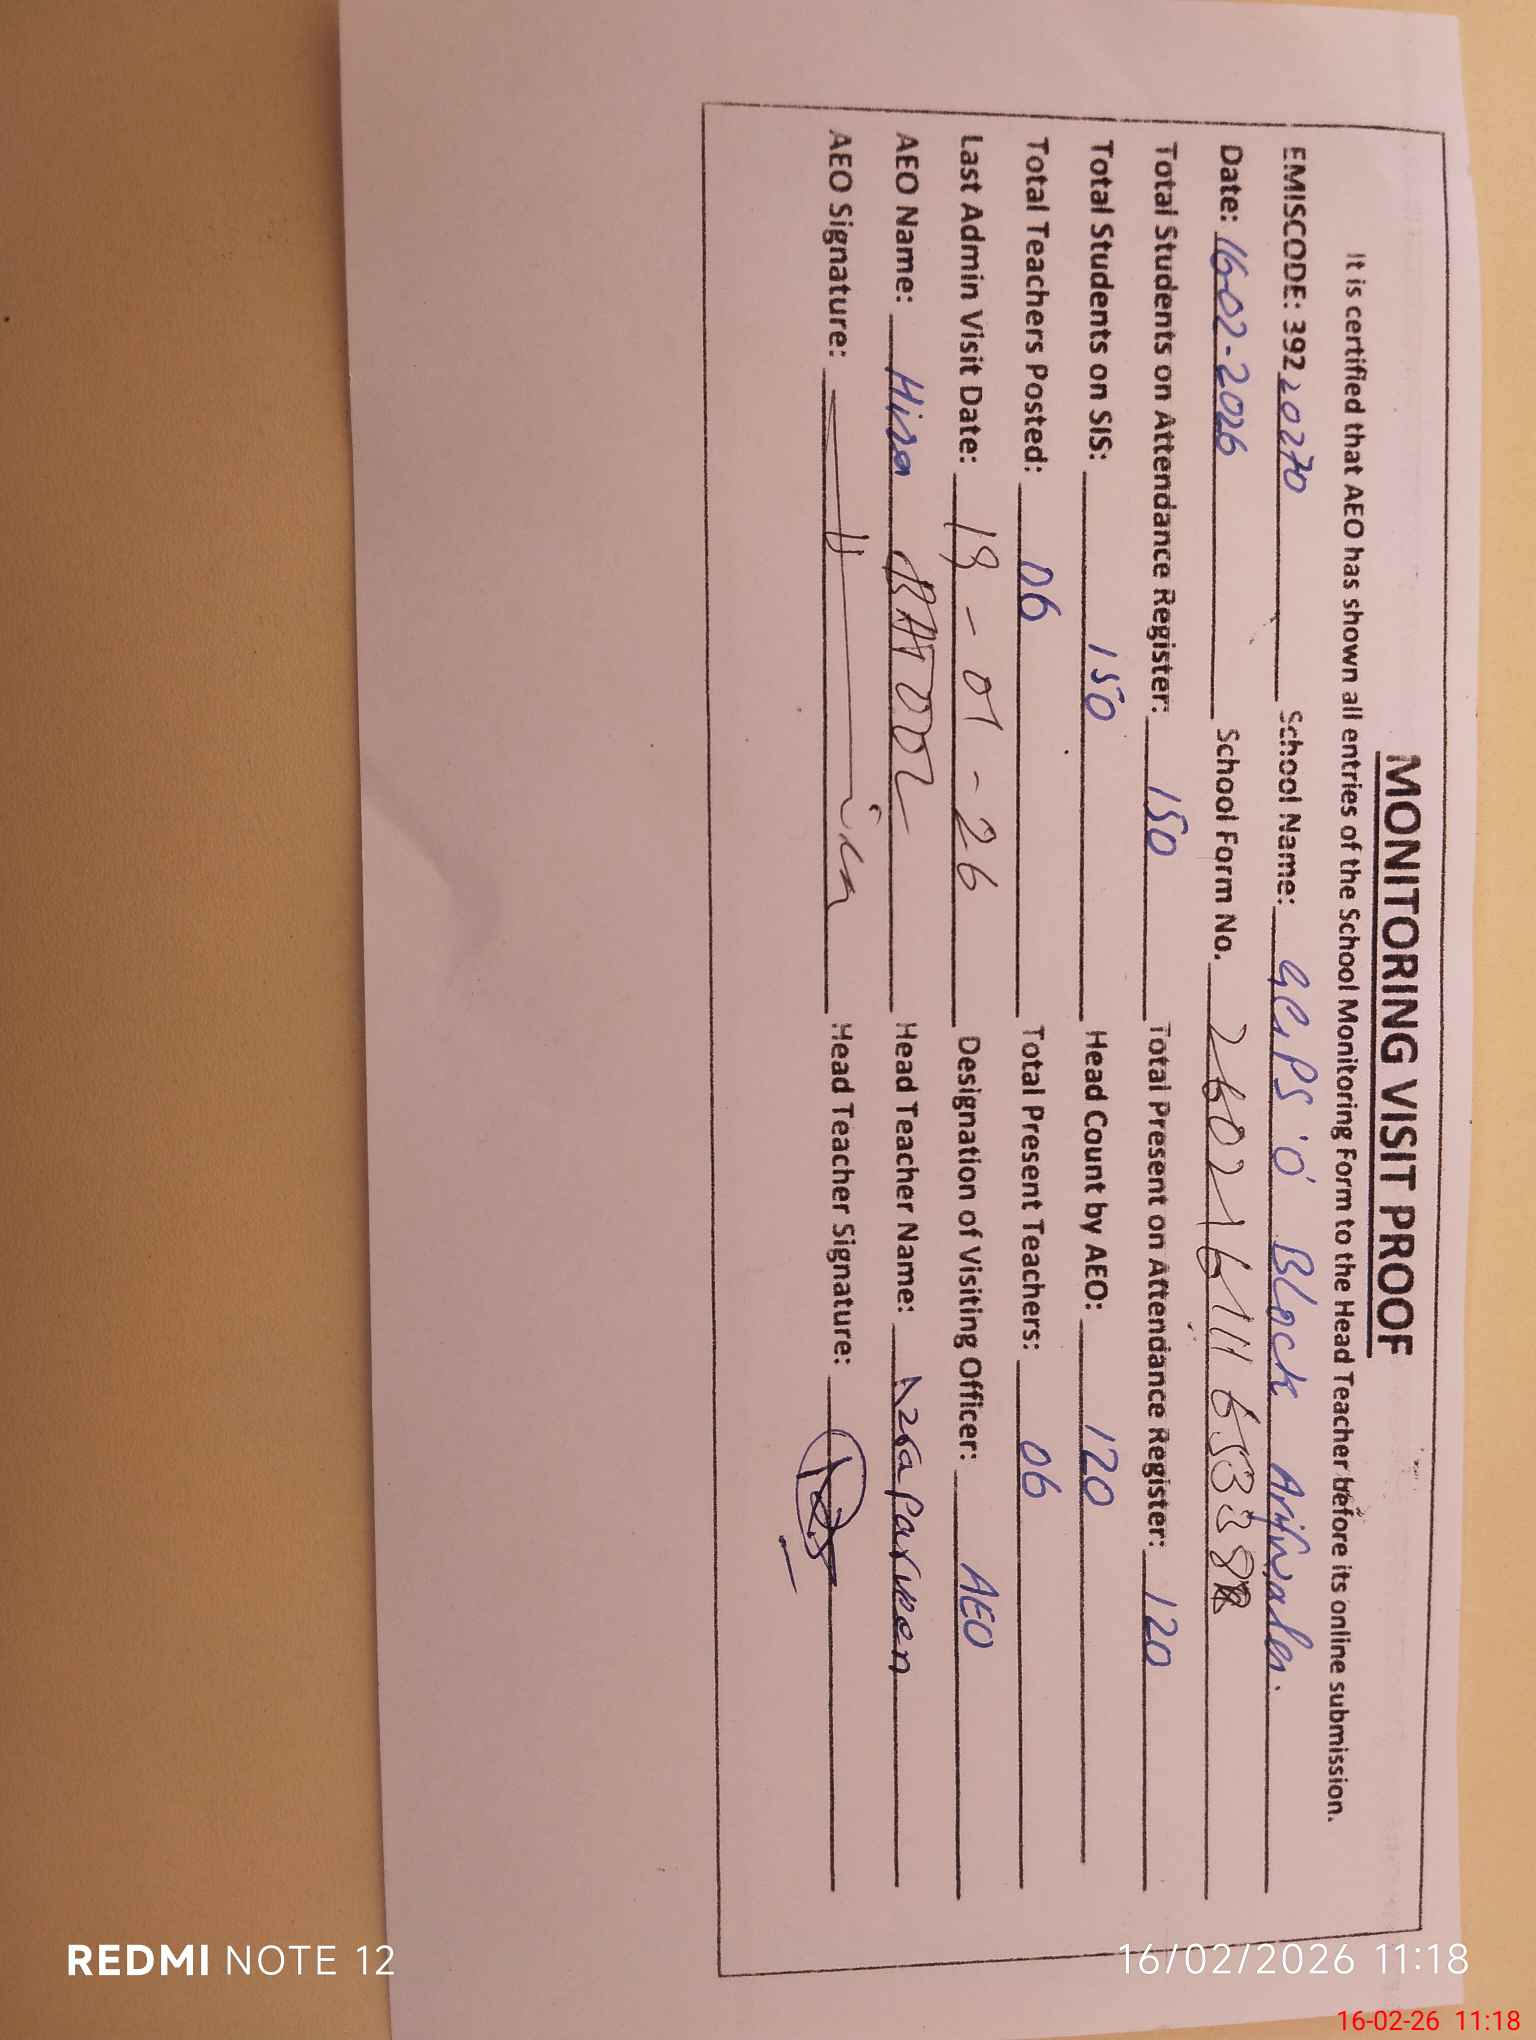 MONITORING VISIT PROOF
It is certified that AEO has shown all entries of the School Monitoring Form to the Head Teacher before its online submission.
EMISCODE: 39220270 School Name: GGPS 'O' Block Arifwala.
Date: 16-02-2026 School Form No. 26021611165338
Total Students on Attendance Register: 150 Total Present on Attendance Register: 120
Total Students on SIS: 150 Head Count by AEO: 120
Total Teachers Posted: 06 Total Present Teachers: 06
Last Admin Visit Date: 19-01-26 Designation of Visiting Officer: AEO
AEO Name: Hira BATOOL Head Teacher Name: Azra Parveen
AEO Signature: Head Teacher Signature:
REDMI NOTE 12
16/02/2026 11:18
16-02-26 11:18